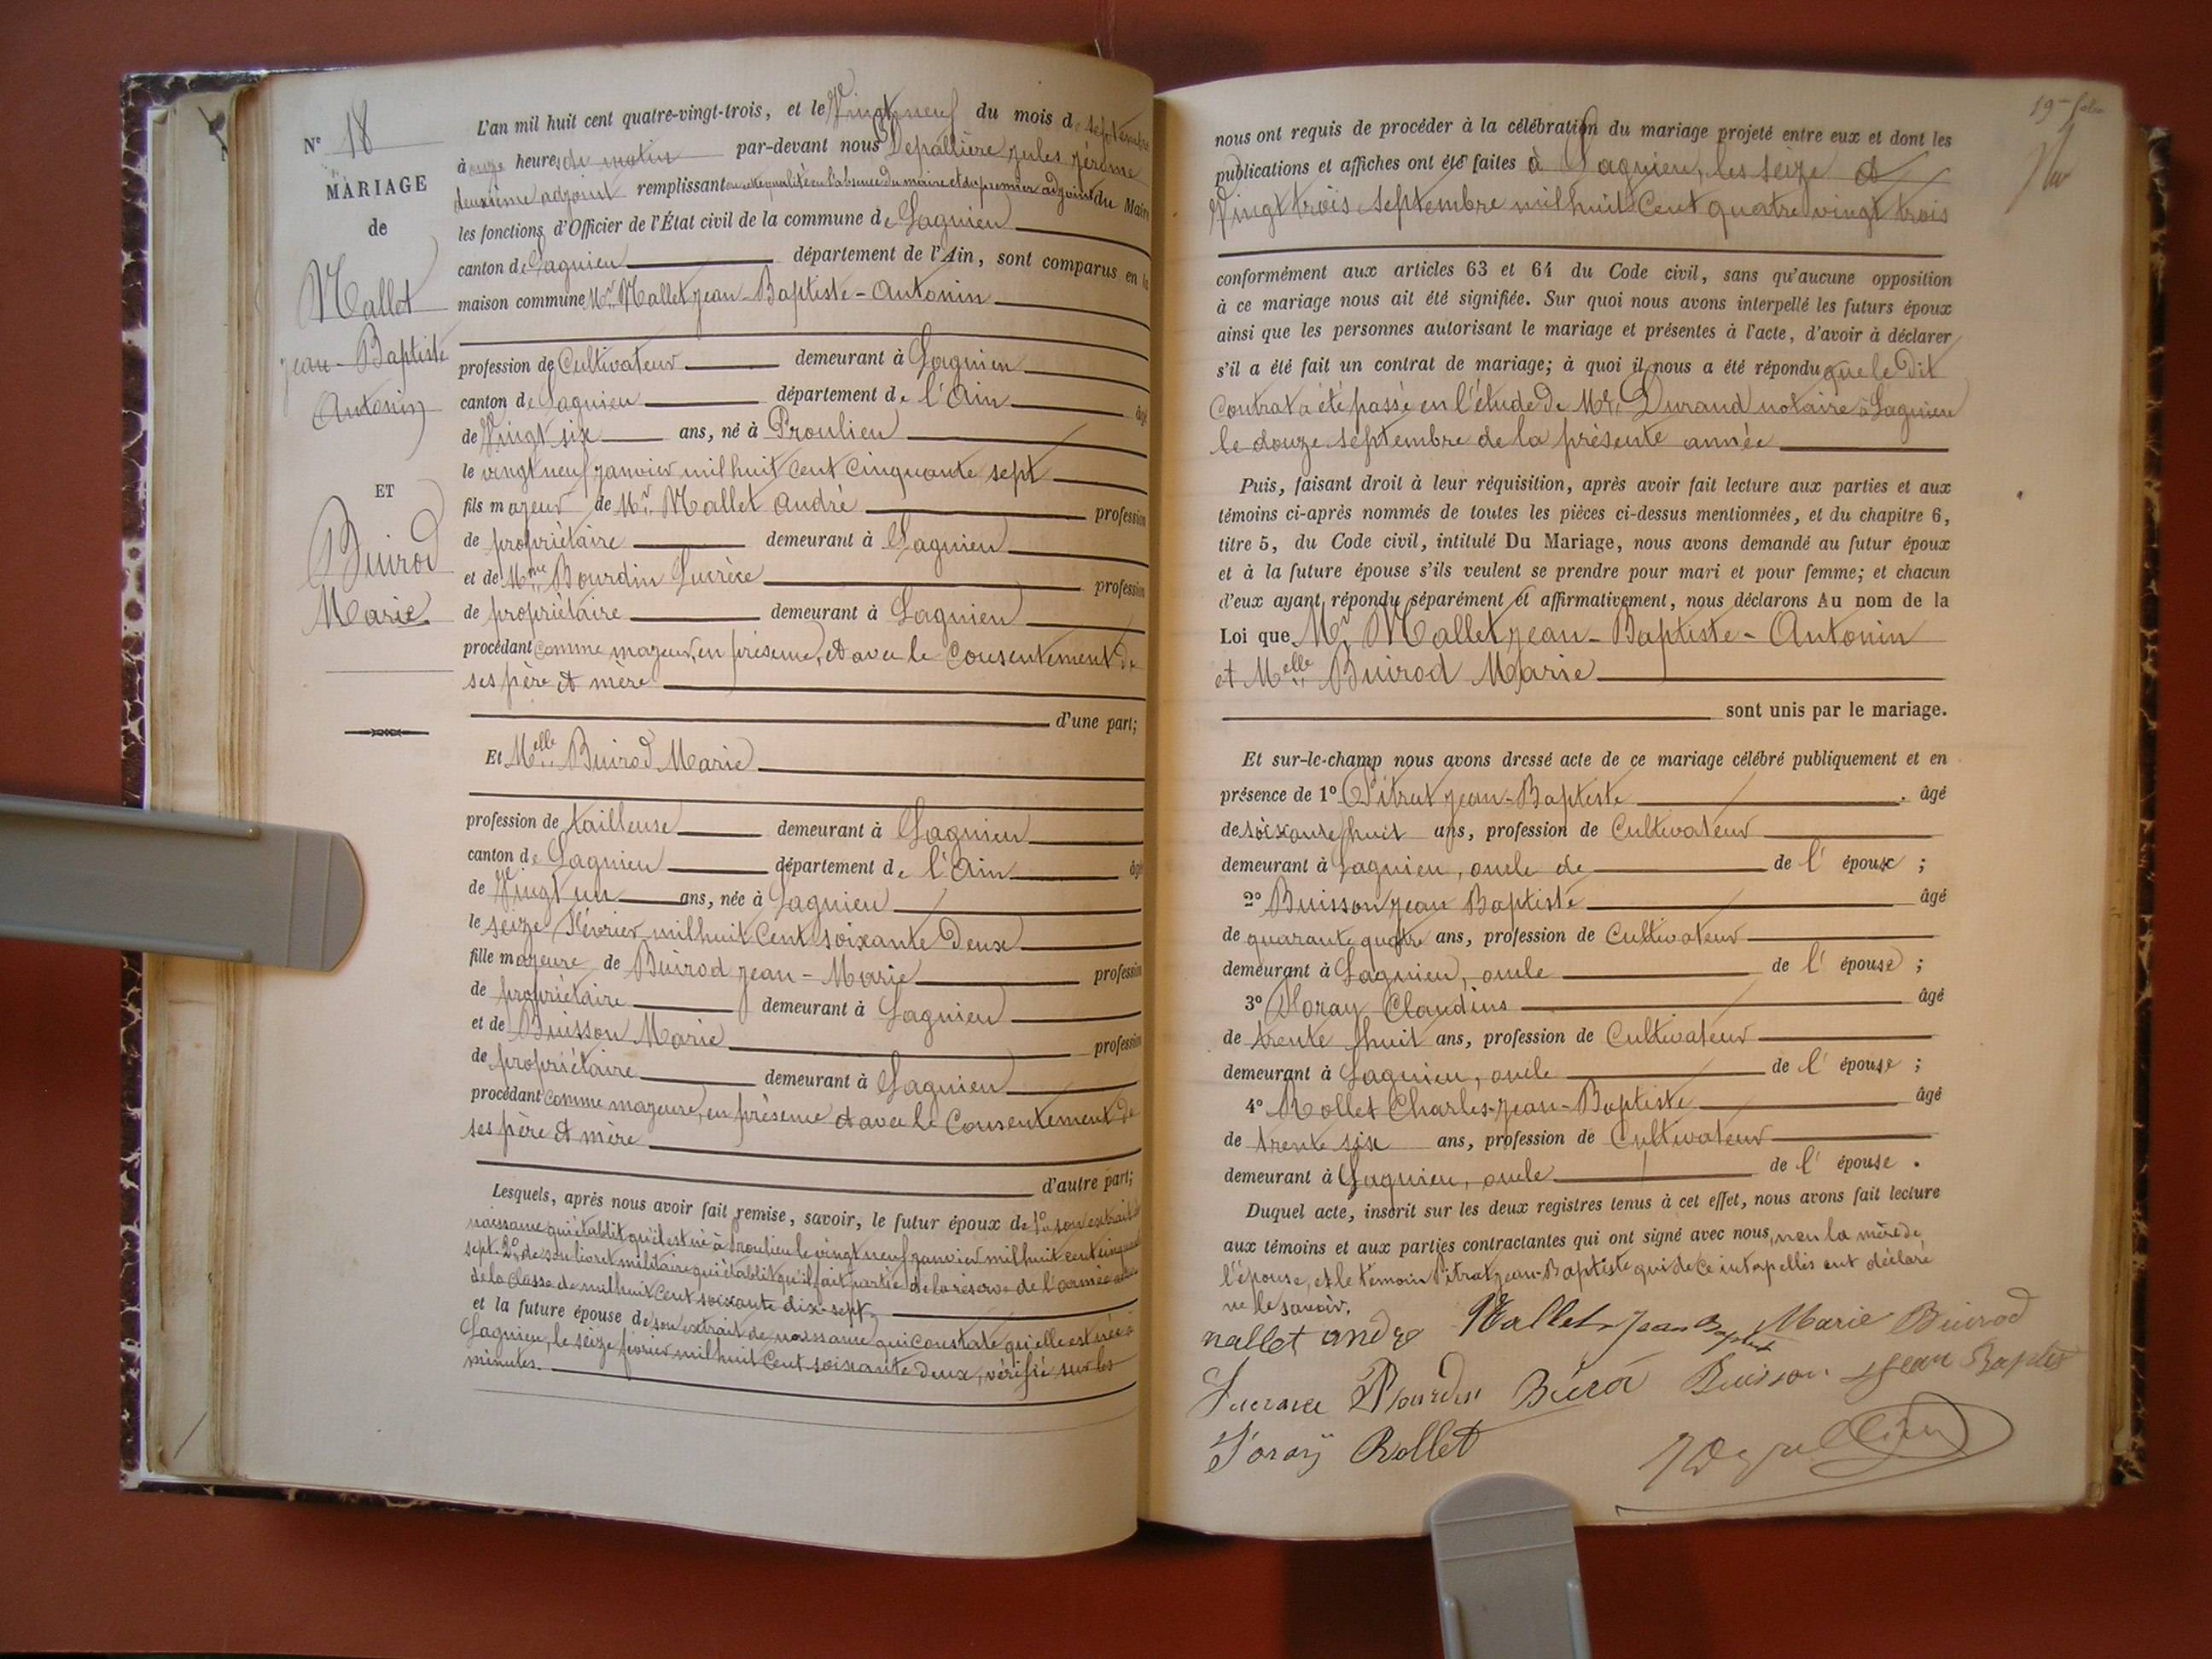 N° 18
MARIAGE
de
Nallet
Jean-Baptiste
Antonin
ET
Buirod
Marie
L'an mil huit cent quatre-vingt-trois, et le Vingt neuf du mois de septembre
à onze heures du matin par-devant nous Depallière Jules Jérôme
deuxième adjoint remplissant en cette qualité en l'absence du maire et du premier adjoint du Maire
les fonctions d'Officier de l'État civil de la commune de Lagnieu
canton de Lagnieu département de l'Ain, sont comparus en la
maison commune Mr Nallet Jean-Baptiste-Antonin
profession de Cultivateur demeurant à Lagnieu
canton de Lagnieu département de l'Ain âgé
de Vingt six ans, né à Proulieu
le vingt neuf janvier mil huit cent cinquante sept
fils majeur de Mr Nallet André profession
de propriétaire demeurant à Lagnieu
et de Mme Bourdin Lucrèce profession
de propriétaire demeurant à Lagnieu
procédant comme majeur, en présence, et avec le Consentement de
ses père et mère
d'une part;
Et Melle Buirod Marie
profession de tailleuse demeurant à Lagnieu
canton de Lagnieu département de l'Ain âgé
de Vingt un ans, née à Lagnieu
le seize Février mil huit Cent soixante Deux
fille majeure de Buirod Jean-Marie profession
de propriétaire demeurant à Lagnieu
et de Buisson Marie profession
de propriétaire demeurant à Lagnieu
procédant comme majeure, en présence et avec le Consentement de
ses père et mère
d'autre part;
Lesquels, après nous avoir fait remise, savoir, le futur époux de 1° son extrait de
naissance qui établit qu'il est né à Proulieu le vingt neuf janvier mil huit cent cinquante
sept. 2° de son livret militaire qui établit qu'il fait partie de la réserve de l'armée active
de la classe de mil huit Cent soixante dix-sept
et la future épouse de son extrait de naissance qui constate qu'elle est née à
Lagnieu, le seize février mil huit Cent soixante deux, vérifié sur les
minutes.
19e folio
nous ont requis de procéder à la célébration du mariage projeté entre eux et dont les
publications et affiches ont été faites à Lagnieu, les seize et
Vingt trois septembre mil huit Cent quatre vingt trois
conformément aux articles 63 et 64 du Code civil, sans qu'aucune opposition
à ce mariage nous ait été signifiée. Sur quoi nous avons interpellé les futurs époux
ainsi que les personnes autorisant le mariage et présentes à l'acte, d'avoir à déclarer
s'il a été fait un contrat de mariage; à quoi il nous a été répondu que le Dit
Contrat a été passé en l'étude de Mre Durand notaire à Lagnieu
le douze septembre de la présente année
Puis, faisant droit à leur réquisition, après avoir fait lecture aux parties et aux
témoins ci-après nommés de toutes les pièces ci-dessus mentionnées, et du chapitre 6,
titre 5, du Code civil, intitulé Du Mariage, nous avons demandé au futur époux
et à la future épouse s'ils veulent se prendre pour mari et pour femme; et chacun
d'eux ayant répondu séparément et affirmativement, nous déclarons Au nom de la
Loi que Mr Nallet Jean-Baptiste-Antonin
et Melle Buirod Marie
sont unis par le mariage.
Et sur-le-champ nous avons dressé acte de ce mariage célébré publiquement et en
présence de 1° Pitrat Jean-Baptiste âgé
de soixante huit ans, profession de Cultivateur
demeurant à Lagnieu, oncle de de l'épouse ;
2° Buisson Jean Baptiste âgé
de quarante quatre ans, profession de Cultivateur
demeurant à Lagnieu, oncle de l'épouse ;
3° Soray Claudius âgé
de trente huit ans, profession de Cultivateur
demeurant à Lagnieu, oncle de l'épouse ;
4° Rollet Charles-Jean-Baptiste âgé
de trente six ans, profession de Cultivateur
demeurant à Lagnieu, oncle de l'épouse .
Duquel acte, inscrit sur les deux registres tenus à cet effet, nous avons fait lecture
aux témoins et aux parties contractantes qui ont signé avec nous, non la mère de
l'épouse, et le témoin Pitrat Jean-Baptiste qui de ce interpellés ont déclaré
ne le savoir.
nallet andre Nallet Jean Baptiste Marie Buirod
Lucrece Bourdin Buisson Jean Baptis
Soray Rollet